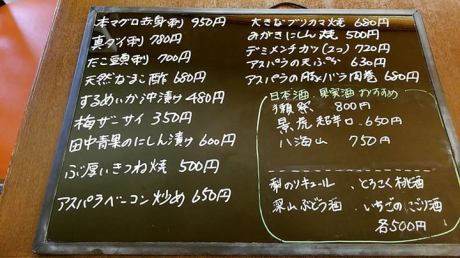 本マグロ赤身刺 950円
真ダイ刺 780円
たこ頭刺 700円
天然なまこ酢 680円
するめいか沖漬け 480円
梅ザーサイ 350円
田中青果のにしん漬け 600円
ぶ厚いきつね焼 500円
アスパラベーコン炒め 650円
大きなブリカマ焼 680円
みがきにしん焼 500円
デミメンチカツ(2コ) 720円
アスパラの天ぷら 630円
アスパラの豚バラ肉巻 680円
日本酒、果実酒おすすめ
獺祭 800円
景虎 超辛口 650円
八海山 750円
梨のリキュール、とろこく桃酒
深山ぶどう酒、いちごのにごり酒
各500円